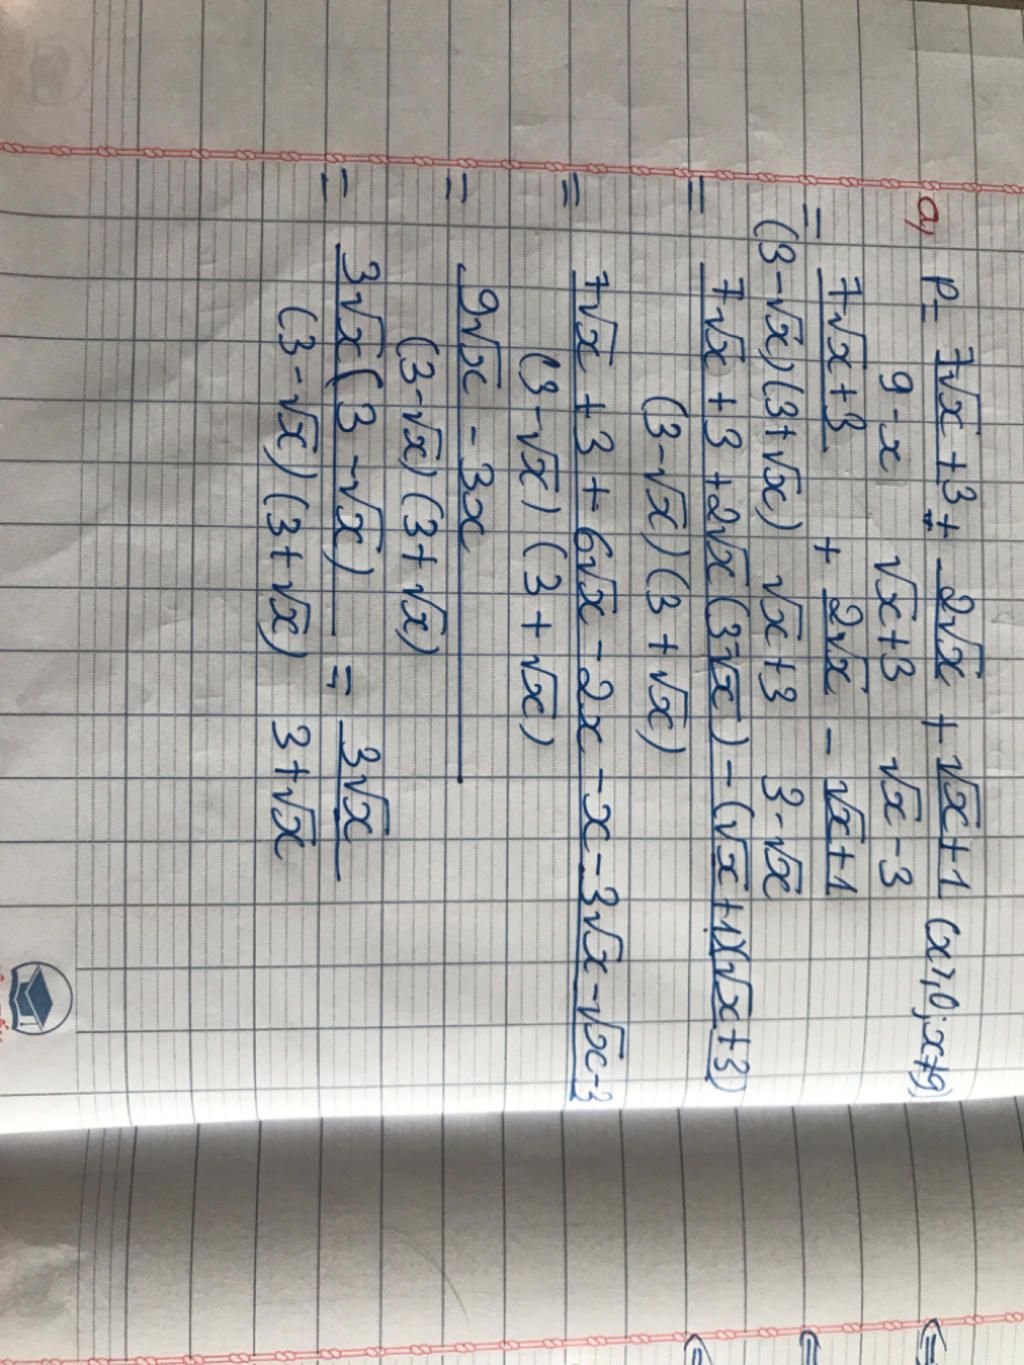 a, P = (7√x + 3)/(9 - x) + (2√x)/(√x + 3) + (√x + 1)/(√x - 3) (x ≥ 0; x ≠ 9)
= (7√x + 3)/((3 - √x)(3 + √x)) + (2√x)/(√x + 3) - (√x + 1)/(3 - √x)
= (7√x + 3 + 2√x(3 - √x) - (√x + 1)(√x + 3))/((3 - √x)(3 + √x))
= (7√x + 3 + 6√x - 2x - x - 3√x - √x - 3)/((3 - √x)(3 + √x))
= (9√x - 3x)/((3 - √x)(3 + √x))
= (3√x(3 - √x))/((3 - √x)(3 + √x)) = (3√x)/(3 + √x)